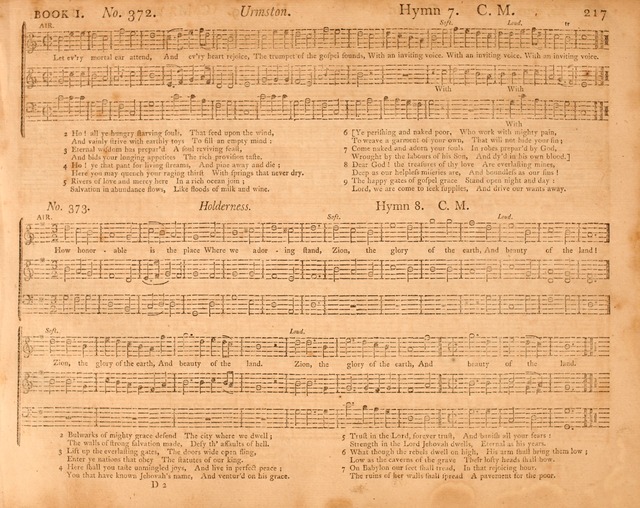 BOOK I. No. 372. Urmston. Hymn 7. C. M. 217
AIR. Soft. Loud.
Let ev'ry mortal ear attend, And ev'ry heart rejoice, The trumpet of the gospel sounds, With an inviting voice. With an inviting voice. With an inviting voice. With an inviting voice.
With With
With
2 Ho! all ye hungry starving souls, That feed upon the wind,
And vainly strive with earthly toys To fill an empty mind;
3 Eternal wisdom has prepar'd A soul reviving feast,
And bids your longing appetites The rich provision taste.
4 Ho! ye that pant for living streams, And pine away and die;
Here you may quench your raging thirst With springs that never dry.
5 Rivers of love and mercy here In a rich ocean join;
Salvation in abundance flows, Like floods of milk and wine.
6 [Ye perishing and naked poor, Who work with mighty pain,
To weave a garment of your own, That will not hide your sin;
7 Come naked and adorn your souls In robes prepar'd by God,
Wrought by the labours of his Son, And dy'd in his own blood.]
8 Dear God! the treasures of thy love Are everlasting mines,
Deep as our helpless miseries are, And boundless as our sins!
9 The happy gates of gospel grace Stand open night and day:
Lord, we are come to seek supplies, And drive our wants away.
No. 373. Holderness. Hymn 8. C. M.
AIR. Soft. Loud.
How honor - able is the place Where we ador - ing stand, Zion, the glory of the earth, And beauty of the land!
Soft. Loud.
Zion, the glory of the earth, And beauty of the land. Zion, the glory of the earth, And beauty of the land.
2 Bulwarks of mighty grace defend The city where we dwell;
The walls of strong salvation made, Defy th' assaults of hell.
3 Lift up the everlasting gates, The doors wide open fling,
Enter ye nations that obey The statutes of our king.
4 Here shall you taste unmingled joys, And live in perfect peace;
You that have known Jehovah's name, And ventur'd on his grace.
5 Trust in the Lord, forever trust, And banish all your fears:
Strength in the Lord Jehovah dwells, Eternal as his years.
6 What though the rebels dwell on high, His arm shall bring them low;
Low as the caverns of the grave Their lofty heads shall bow.
7 On Babylon our feet shall tread, In that rejoicing hour.
The ruins of her walls shall spread A pavement for the poor.
D 2